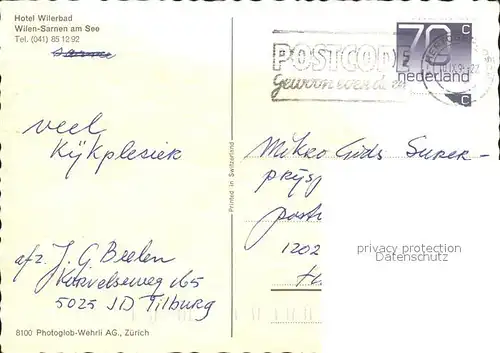 Hotel Wilerbad
Wilen-Sarnen am See
Tel. (041) 85 12 92
Sarnen
70 c
nederland
c
POSTCODE
Gewoon even doen
veel
Kijkplesier
Printed in Switzerland
Mikro Gids Super-
prijs
post
1202
privacy protection
Datenschutz
afz. J. G Beelen
Korvelseweg 165
5025 JD Tilburg
8100 Photoglob-Wehrli AG., Zürich